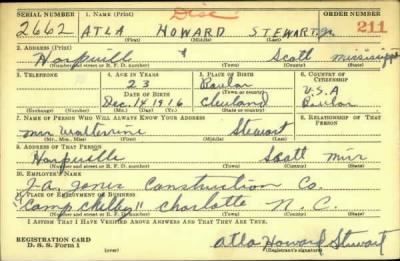 Disc
SERIAL NUMBER 1. NAME (Print) ORDER NUMBER
2662 ATLA HOWARD STEWART Jr. 211
(First) (Middle) (Last)
2. ADDRESS (Print)
Harpville Scott Mississippi
(Number and street or R. F. D. number) (Town) (County) (State)
3. TELEPHONE 4. AGE IN YEARS 5. PLACE OF BIRTH 6. COUNTRY OF CITIZENSHIP
23
DATE OF BIRTH (Town or county)
Dec. 14 1916 U.S.A
(Exchange) (Number) (Mo.) (Day) (Yr.) (State or country)
7. NAME OF PERSON WHO WILL ALWAYS KNOW YOUR ADDRESS 8. RELATIONSHIP OF THAT PERSON
Stewart
(Mr., Mrs., Miss) (First) (Middle) (Last)
9. ADDRESS OF THAT PERSON
Harpville Scott Miss
(Number and street or R. F. D. number) (Town) (County) (State)
10. EMPLOYER'S NAME
J-A. Jones Construction Co.
11. PLACE OF EMPLOYMENT OR BUSINESS
"Camp Shelby" Charlotte N. C.
(Number and street or R. F. D. number) (Town) (County) (State)
I AFFIRM THAT I HAVE VERIFIED ABOVE ANSWERS AND THAT THEY ARE TRUE.
REGISTRATION CARD Atla Howard Stewart
D. S. S. Form 1 (over) (Registrant's signature)